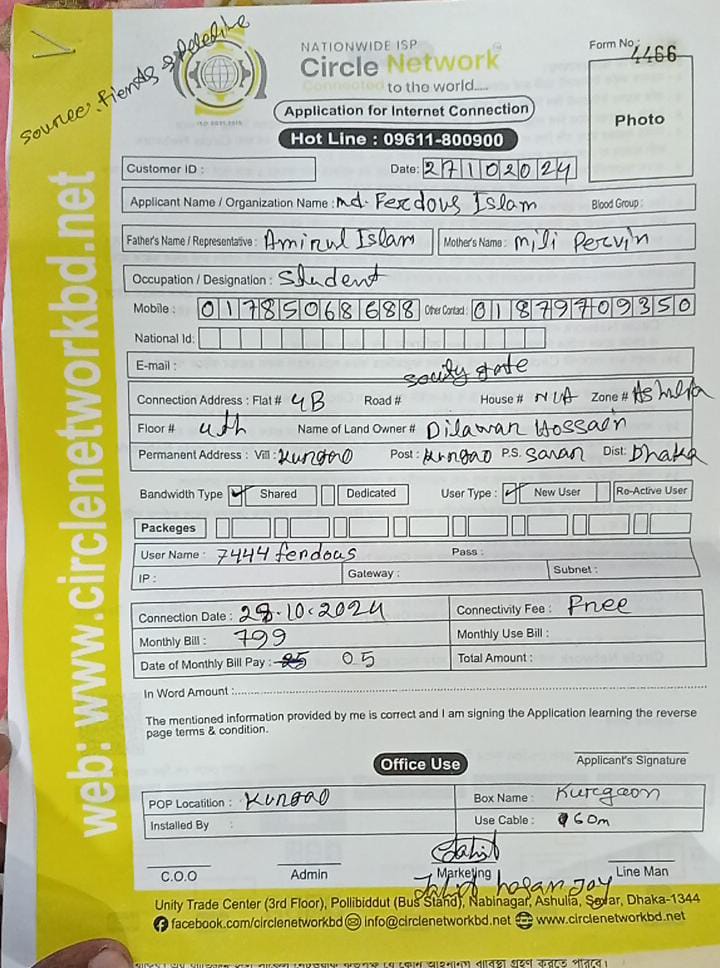 Source: fiends & Relative
NATIONWIDE ISP
Circle Network
Connected to the world.....
ISO 9001:2015
Application for Internet Connection
Hot Line : 09611-800900
Form No.: 4466
Photo
web: www.circlenetworkbd.net
Customer ID :
Date: 27102024
Applicant Name / Organization Name : md. Ferdous Islam Blood Group:
Father's Name / Representative : Amirul Islam Mother's Name : mili Pervin
Occupation / Designation : Student
Mobile : 01785068688 Other Contact : 01879709350
National Id:
E-mail :
souity gate
Connection Address : Flat # 4B Road # House # N/A Zone # Ashulia
Floor # 4th Name of Land Owner # Dilawar Hossain
Permanent Address : Vill : Kurgao Post : Kurgao P.S. Savar Dist: Dhaka
Bandwidth Type ✓ Shared Dedicated User Type : ✓ New User Re-Active User
Packeges
User Name : 7444ferdous Pass :
IP : Gateway : Subnet :
Connection Date : 28.10.2024 Connectivity Fee : Free
Monthly Bill : 799 Monthly Use Bill :
Date of Monthly Bill Pay : 25 05 Total Amount :
In Word Amount :
The mentioned information provided by me is correct and I am signing the Application learning the reverse
page terms & condition.
Applicant's Signature
Office Use
POP Locatition : Kurgao Box Name : Kurgaon
Installed By : Use Cable : 60m
C.O.O Admin Marketing Line Man
Jahid hasan Joy
Unity Trade Center (3rd Floor), Pollibiddut (Bus Stand), Nabinagar, Ashulia, Savar, Dhaka-1344
facebook.com/circlenetworkbd info@circlenetwork.net www.circlenetworkbd.net